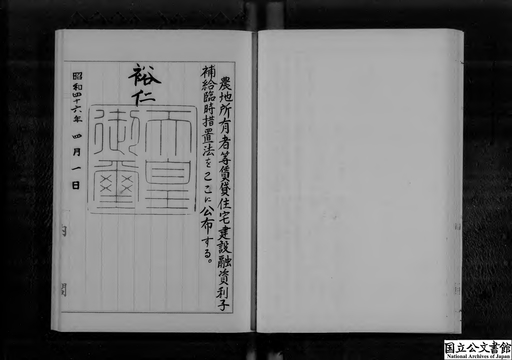 農地所有者等賃貸住宅建設融資利子
補給臨時措置法をここに公布する。
裕仁
天皇
御璽
昭和四十六年四月一日
国立公文書館
National Archives of Japan